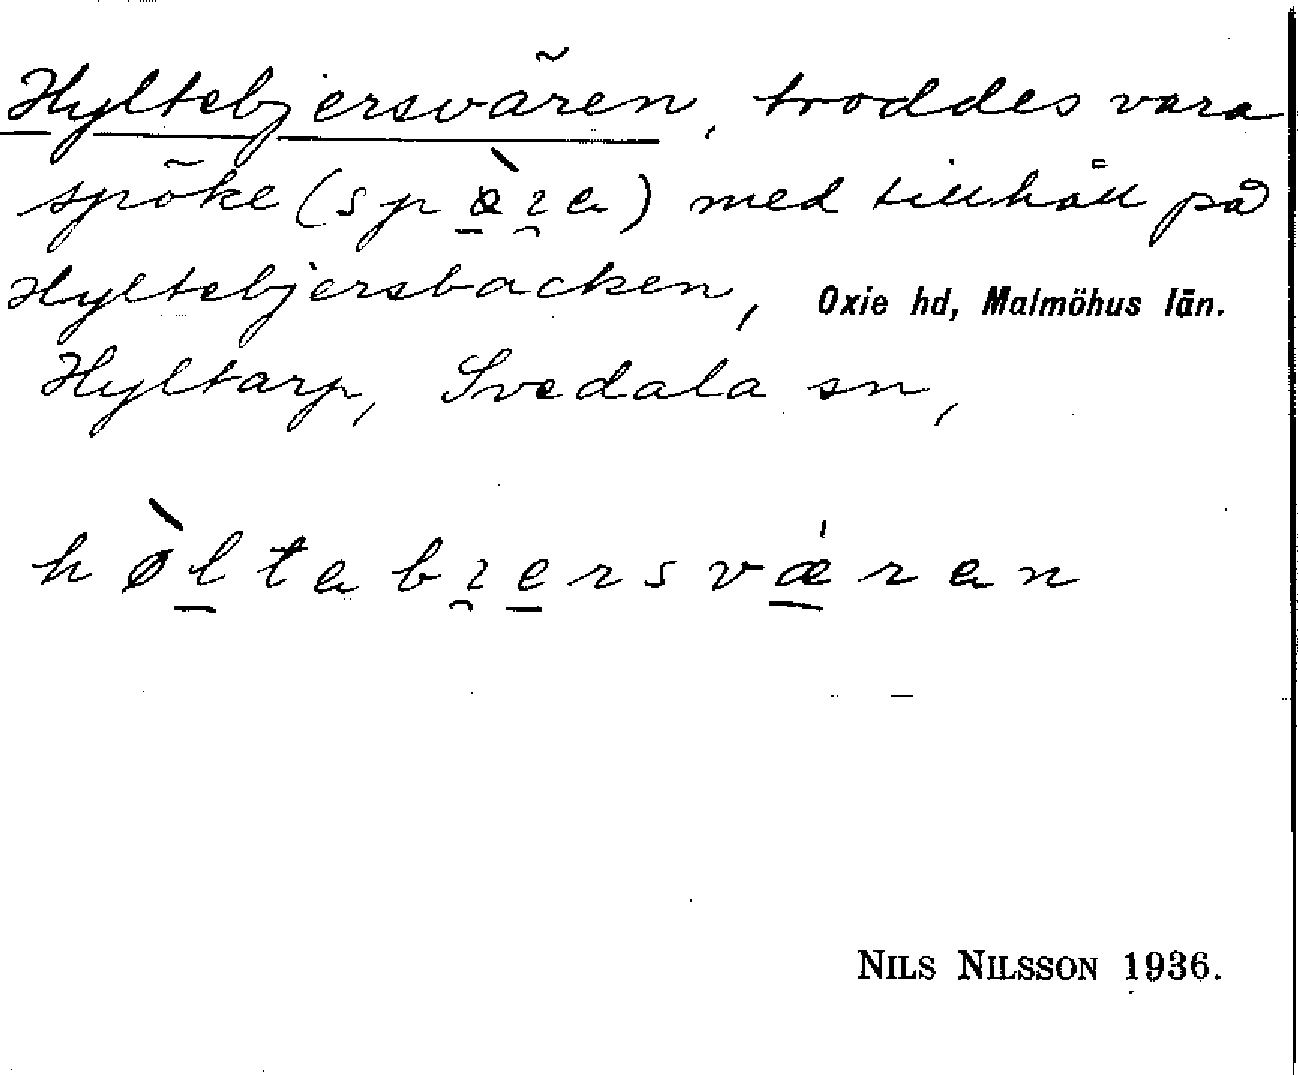 Hyltebjersvären, troddes vara
spöke (spœ̀ɿa) med tillhåll på
Hyltebjersbacken, Oxie hd, Malmöhus län.
Hyltarp, Svedala sn,
hø̀ltabɿersværan
NILS NILSSON 1936.